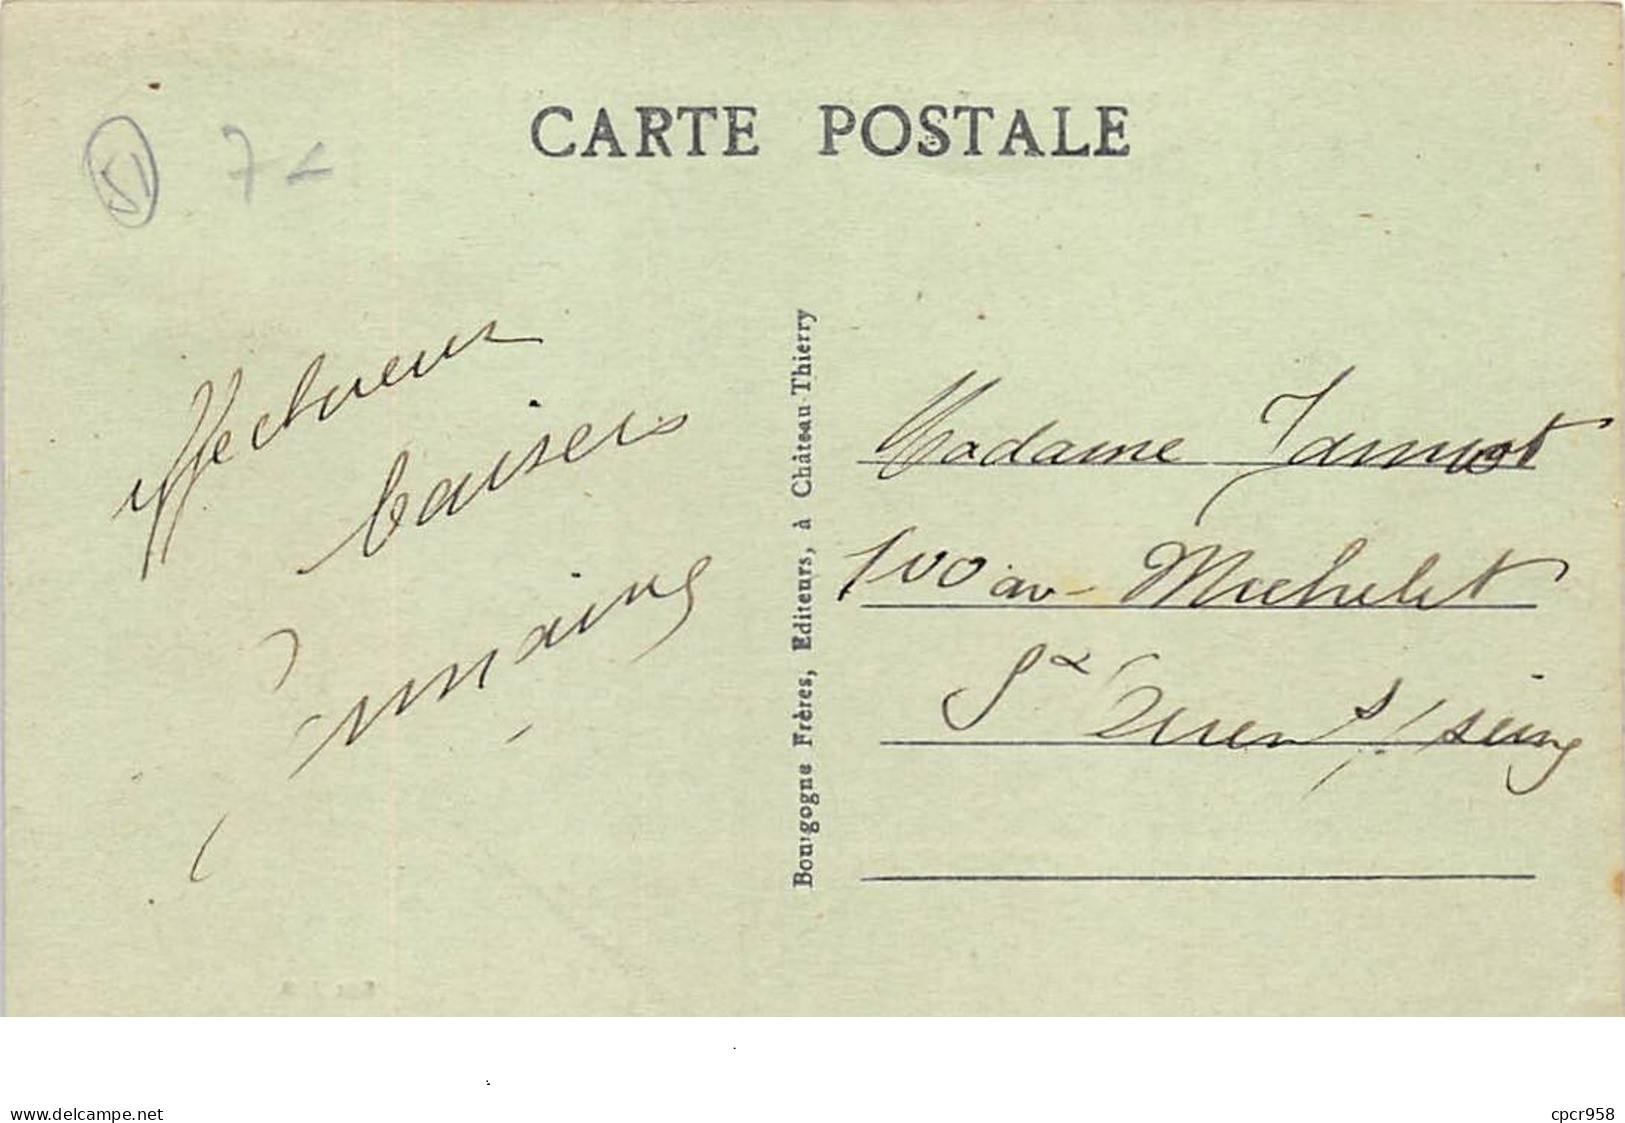 CARTE POSTALE
51 7
affectueux
baisers
Bourgogne Frères, Editeurs, à Château-Thierry
Madame Jannot
100 av- Michelet
St Ouen s/ seine
www.delcampe.net
cpcr958